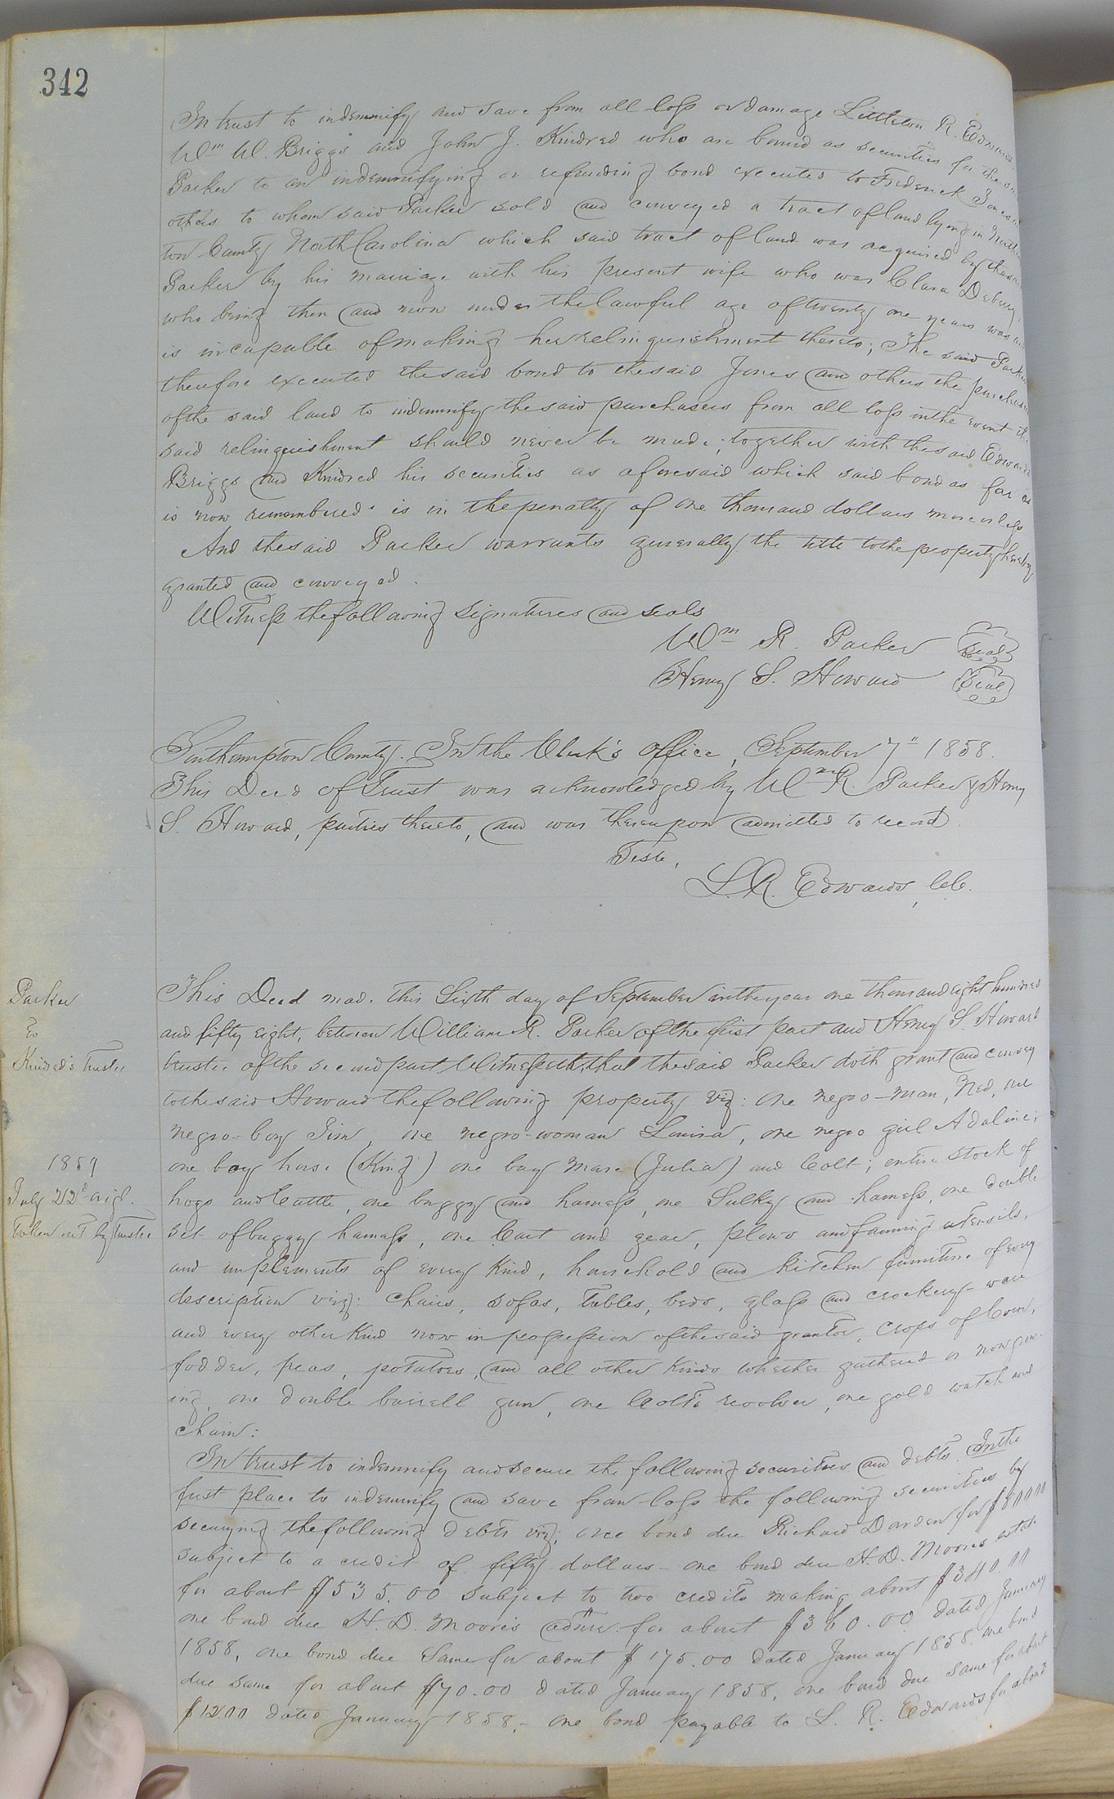 342
In trust to indemnify and save from all loss or damage Littleton R. Edwards
Wm W. Briggs and John J. Kindred who are bound as securities for the
Parker to an indemnifying or refunding bond executed to Frederick
others to whom said Parker sold and conveyed a tract of land lying in
County North Carolina which said tract of land was acquired by the
Parker by his marriage with his present wife who was Clara
who being then and now under the lawful age of twenty one years was
is incapable of making her relinquishment thereto; The said Parker
therefore executed the said bond to the said Jones and others the purchasers
of the said land to indemnify the said purchasers from all loss in the event the
said relinquishment should never be made, together with the said Edwards
Briggs and Kindred his securities as aforesaid which said bond as far as
is now remembered is in the penalty of one thousand dollars more or less
And the said Parker warrants generally the title to the property hereby
granted and conveyed.
Witness the following signatures and seals
Wm R. Parker Seal
Henry S. Howard Seal
Southampton County. In the Clerk's office, September 7" 1858.
This Deed of Trust was acknowledged by Wm R Parker & Henry
S. Howard, parties thereto, and was thereupon admitted to record
Teste,
L. R. Edwards, C.C.
Parker
To
Kindred's Trustee
1859
July 212d origl.
Taken out by Trustee
This Deed made this Sixth day of September in the year one thousand eight hundred
and fifty eight, between William R. Parker of the first part and Henry S. Howard
trustee of the second part Witnesseth; that the said Parker doth grant and convey
to the said Howard the following property viz: One negro-man, Ned, one
negro-boy Jim, one negro-woman Louisa, one negro girl Adaline;
one bay horse (King) one bay mare (Julia) and Colt; entire stock of
hogs and Cattle, one buggy and harness, one Sulky and harness, one double
set of buggy harness, one Cart and gear, plows and farming utensils,
and implements of every kind, household and kitchen furniture of every
description viz: Chairs, sofas, tables, beds, glass and crockery-ware
and every other kind now in possession of the said grantor, Crops of Corn,
fodder, peas, potatoes, and all other kinds whether gathered or now grow-
ing, one double barrell gun, one Colt's revolver, one gold watch and
chain:
In trust to indemnify and secure the following securities and debts In the
first place to indemnify and save from loss the following securities by
securing the following debts viz; one bond due Richard Darden for $500.00
subject to a credit of fifty dollars - one bond due H. D. Moores estate
for about $535.00 subject to two credits making about $340.00
one bond due H. D. Moore's admr. for about $360.00 dated January
1858, one bond due Same for about $175.00 dated January 1858 one bond
due same for about $70.00 dated January 1858, one bond due same for about
$12.00 dated January 1858,- one bond payable to L. R. Edwards for about